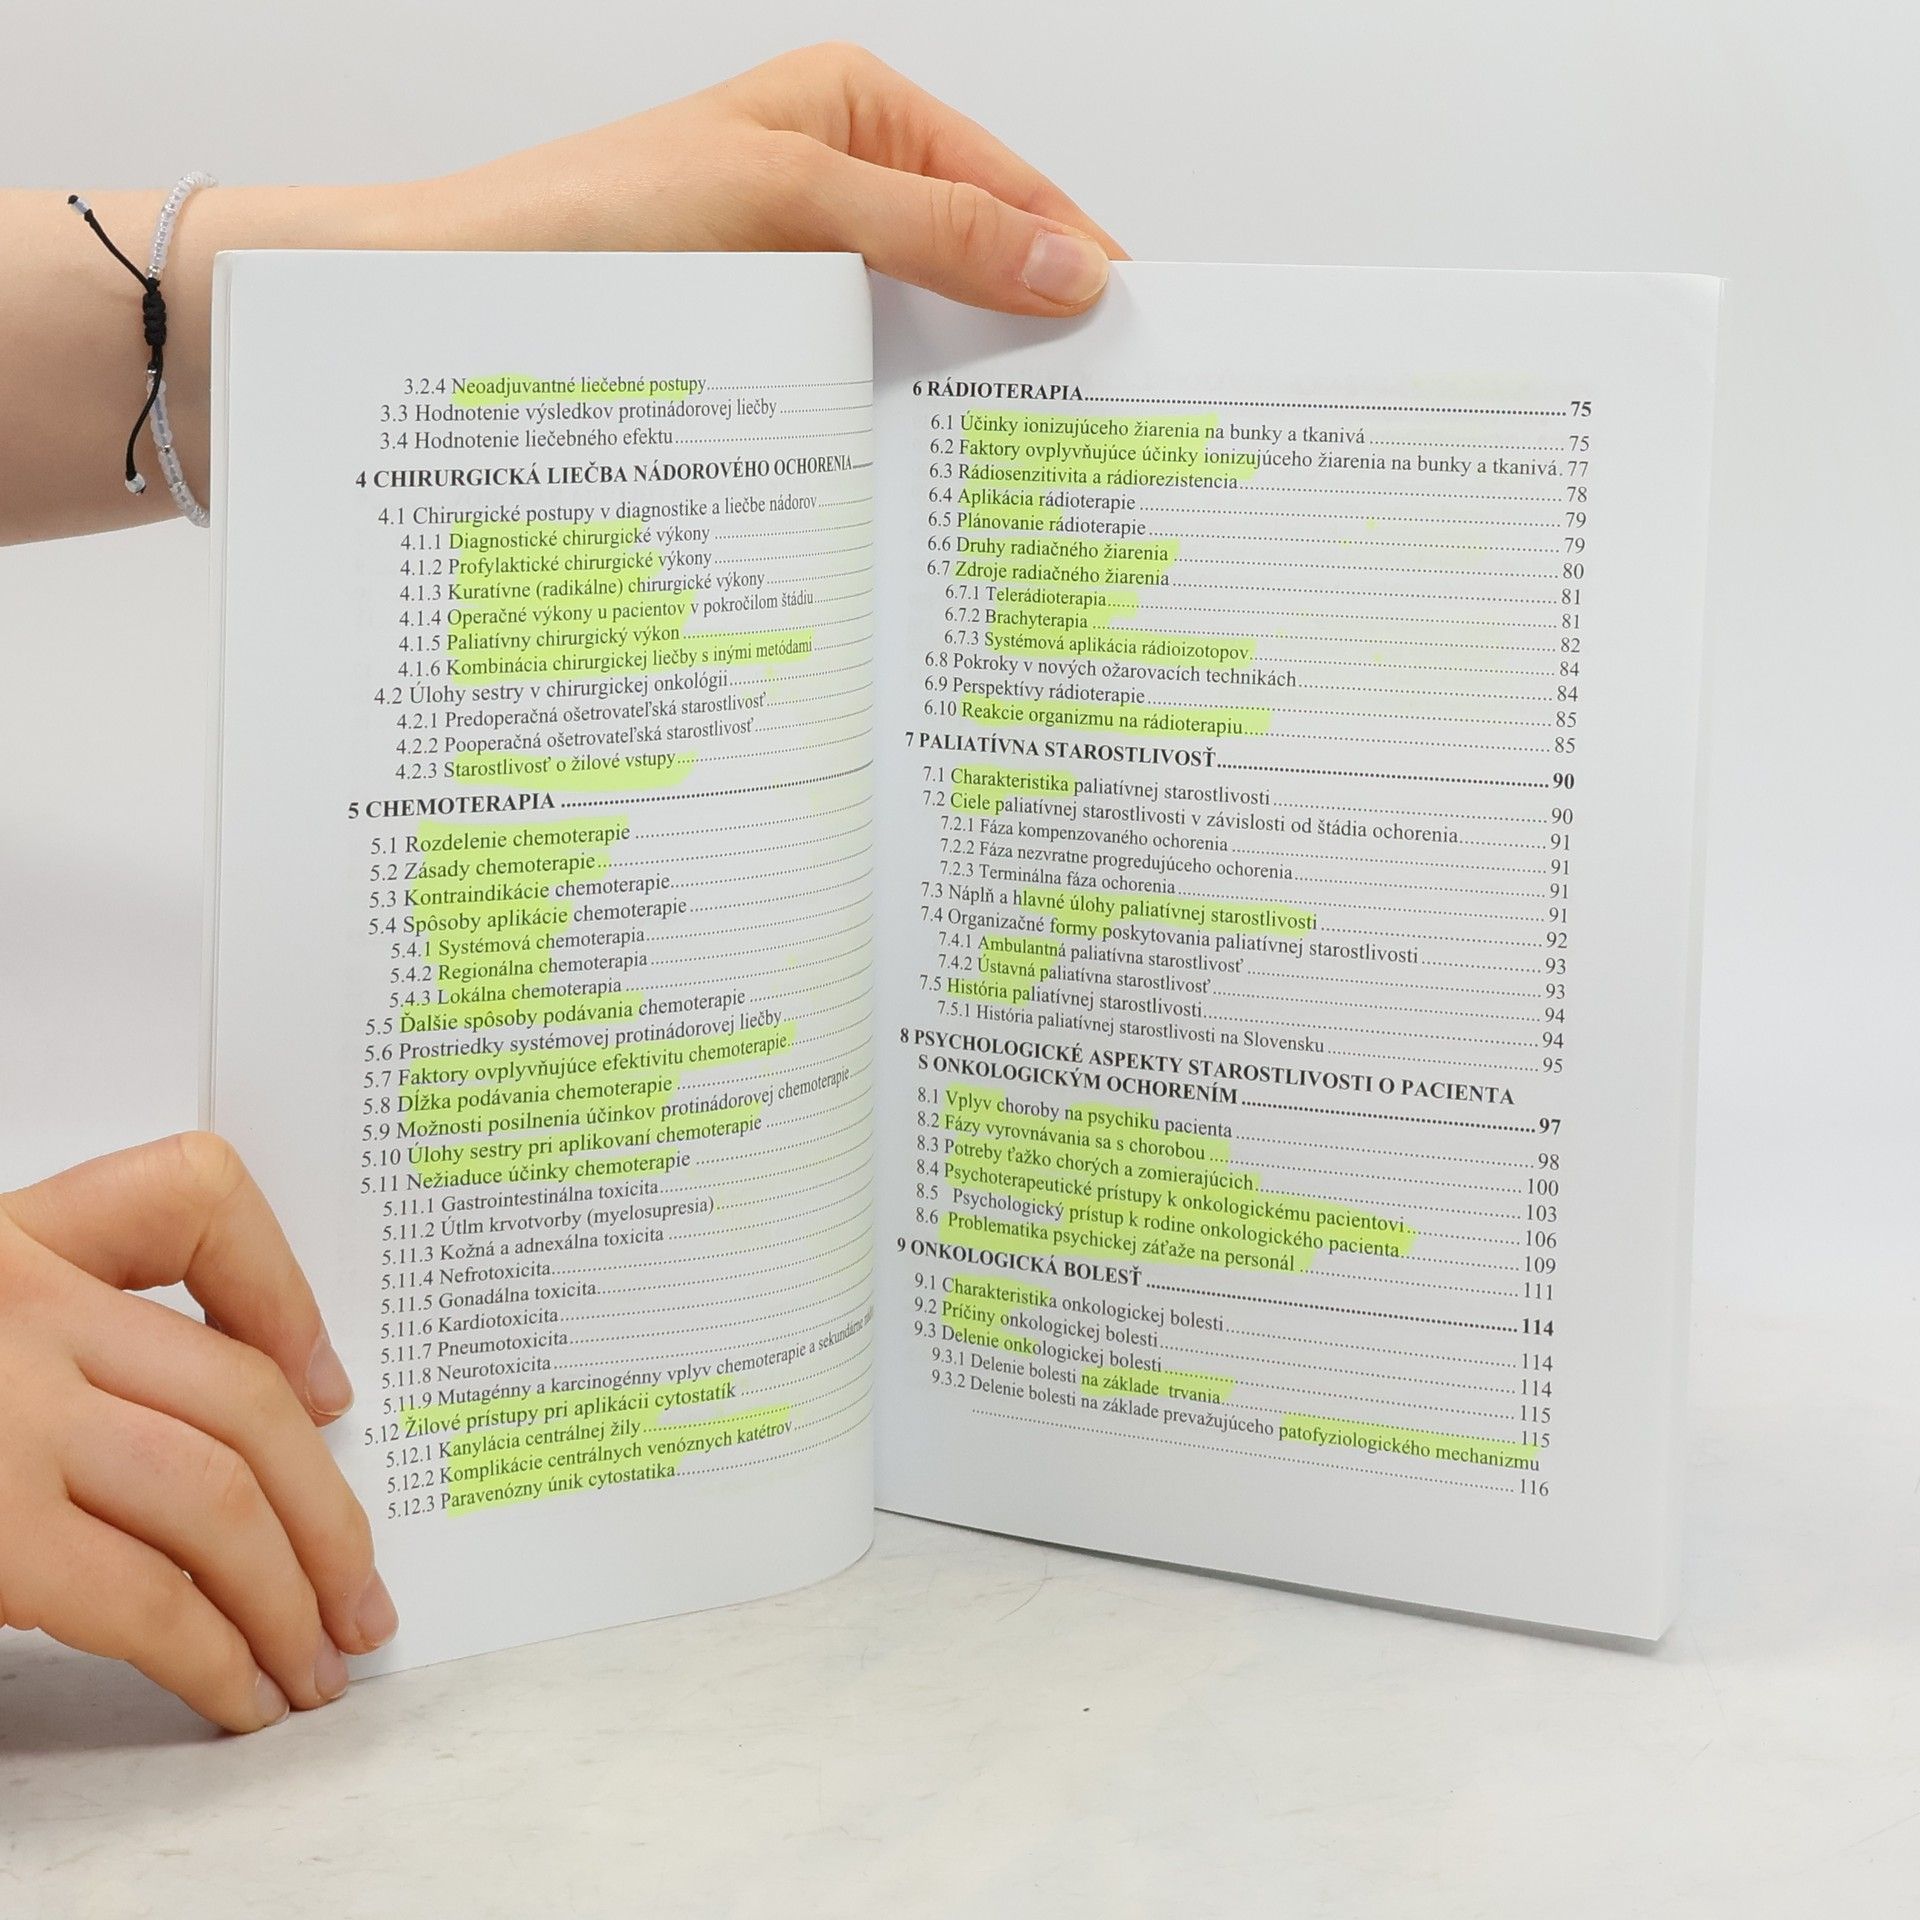 3.2.4 Neoadjuvantné liečebné postupy
3.3 Hodnotenie výsledkov protinádorovej liečby
3.4 Hodnotenie liečebného efektu
4 CHIRURGICKÁ LIEČBA NÁDOROVÉHO OCHORENIA
4.1 Chirurgické postupy v diagnostike a liečbe nádorov
4.1.1 Diagnostické chirurgické výkony
4.1.2 Profylaktické chirurgické výkony
4.1.3 Kuratívne (radikálne) chirurgické výkony
4.1.4 Operačné výkony u pacientov v pokročilom štádiu
4.1.5 Paliatívny chirurgický výkon
4.1.6 Kombinácia chirurgickej liečby s inými metódami
4.2 Úlohy sestry v chirurgickej onkológii
4.2.1 Predoperačná ošetrovateľská starostlivosť
4.2.2 Pooperačná ošetrovateľská starostlivosť
4.2.3 Starostlivosť o žilové vstupy
5 CHEMOTERAPIA
5.1 Rozdelenie chemoterapie
5.2 Zásady chemoterapie
5.3 Kontraindikácie chemoterapie
5.4 Spôsoby aplikácie chemoterapie
5.4.1 Systémová chemoterapia
5.4.2 Regionálna chemoterapia
5.4.3 Lokálna chemoterapia
5.5 Ďalšie spôsoby podávania chemoterapie
5.6 Prostriedky systémovej protinádorovej liečby
5.7 Faktory ovplyvňujúce efektivitu chemoterapie
5.8 Dĺžka podávania chemoterapie
5.9 Možnosti posilnenia účinkov protinádorovej chemoterapie
5.10 Úlohy sestry pri aplikovaní chemoterapie
5.11 Nežiaduce účinky chemoterapie
5.11.1 Gastrointestinálna toxicita
5.11.2 Útlm krvotvorby (myelosupresia)
5.11.3 Kožná a adnexálna toxicita
5.11.4 Nefrotoxicita
5.11.5 Gonadálna toxicita
5.11.6 Kardiotoxicita
5.11.7 Pneumotoxicita
5.11.8 Neurotoxicita
5.11.9 Mutagénny a karcinogénny vplyv chemoterapie a sekundárne
5.12 Žilové prístupy pri aplikácii cytostatík
5.12.1 Kanylácia centrálnej žily
5.12.2 Komplikácie centrálnych venóznych katétrov
5.12.3 Paravenózny únik cytostatika
6 RÁDIOTERAPIA 75
6.1 Účinky ionizujúceho žiarenia na bunky a tkanivá 75
6.2 Faktory ovplyvňujúce účinky ionizujúceho žiarenia na bunky a tkanivá. 77
6.3 Rádiosenzitivita a rádiorezistencia 78
6.4 Aplikácia rádioterapie 79
6.5 Plánovanie rádioterapie 79
6.6 Druhy radiačného žiarenia 80
6.7 Zdroje radiačného žiarenia 81
6.7.1 Telerádioterapia 81
6.7.2 Brachyterapia 82
6.7.3 Systémová aplikácia rádioizotopov 84
6.8 Pokroky v nových ožarovacích technikách 84
6.9 Perspektívy rádioterapie 85
6.10 Reakcie organizmu na rádioterapiu 85
7 PALIATÍVNA STAROSTLIVOSŤ 90
7.1 Charakteristika paliatívnej starostlivosti 90
7.2 Ciele paliatívnej starostlivosti v závislosti od štádia ochorenia 91
7.2.1 Fáza kompenzovaného ochorenia 91
7.2.2 Fáza nezvratne progredujúceho ochorenia 91
7.2.3 Terminálna fáza ochorenia 91
7.3 Náplň a hlavné úlohy paliatívnej starostlivosti 92
7.4 Organizačné formy poskytovania paliatívnej starostlivosti 93
7.4.1 Ambulantná paliatívna starostlivosť 93
7.4.2 Ústavná paliatívna starostlivosť 94
7.5 História paliatívnej starostlivosti 94
7.5.1 História paliatívnej starostlivosti na Slovensku 95
8 PSYCHOLOGICKÉ ASPEKTY STAROSTLIVOSTI O PACIENTA
S ONKOLOGICKÝM OCHORENÍM 97
8.1 Vplyv choroby na psychiku pacienta 98
8.2 Fázy vyrovnávania sa s chorobou 100
8.3 Potreby ťažko chorých a zomierajúcich 103
8.4 Psychoterapeutické prístupy k onkologickému pacientovi 106
8.5 Psychologický prístup k rodine onkologického pacienta 109
8.6 Problematika psychickej záťaže na personál 111
9 ONKOLOGICKÁ BOLESŤ 114
9.1 Charakteristika onkologickej bolesti 114
9.2 Príčiny onkologickej bolesti 114
9.3 Delenie onkologickej bolesti 115
9.3.1 Delenie bolesti na základe trvania 115
9.3.2 Delenie bolesti na základe prevažujúceho patofyziologického mechanizmu
116